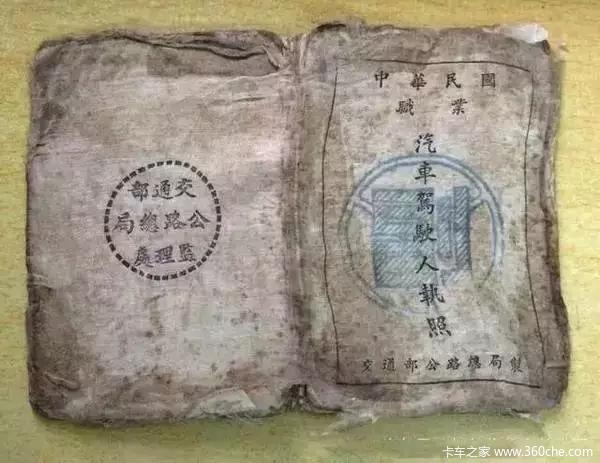 交通部
公路總局
監理處
中華民國
職業
汽車駕駛人執照
交通部公路總局製
卡车之家 www.360che.com